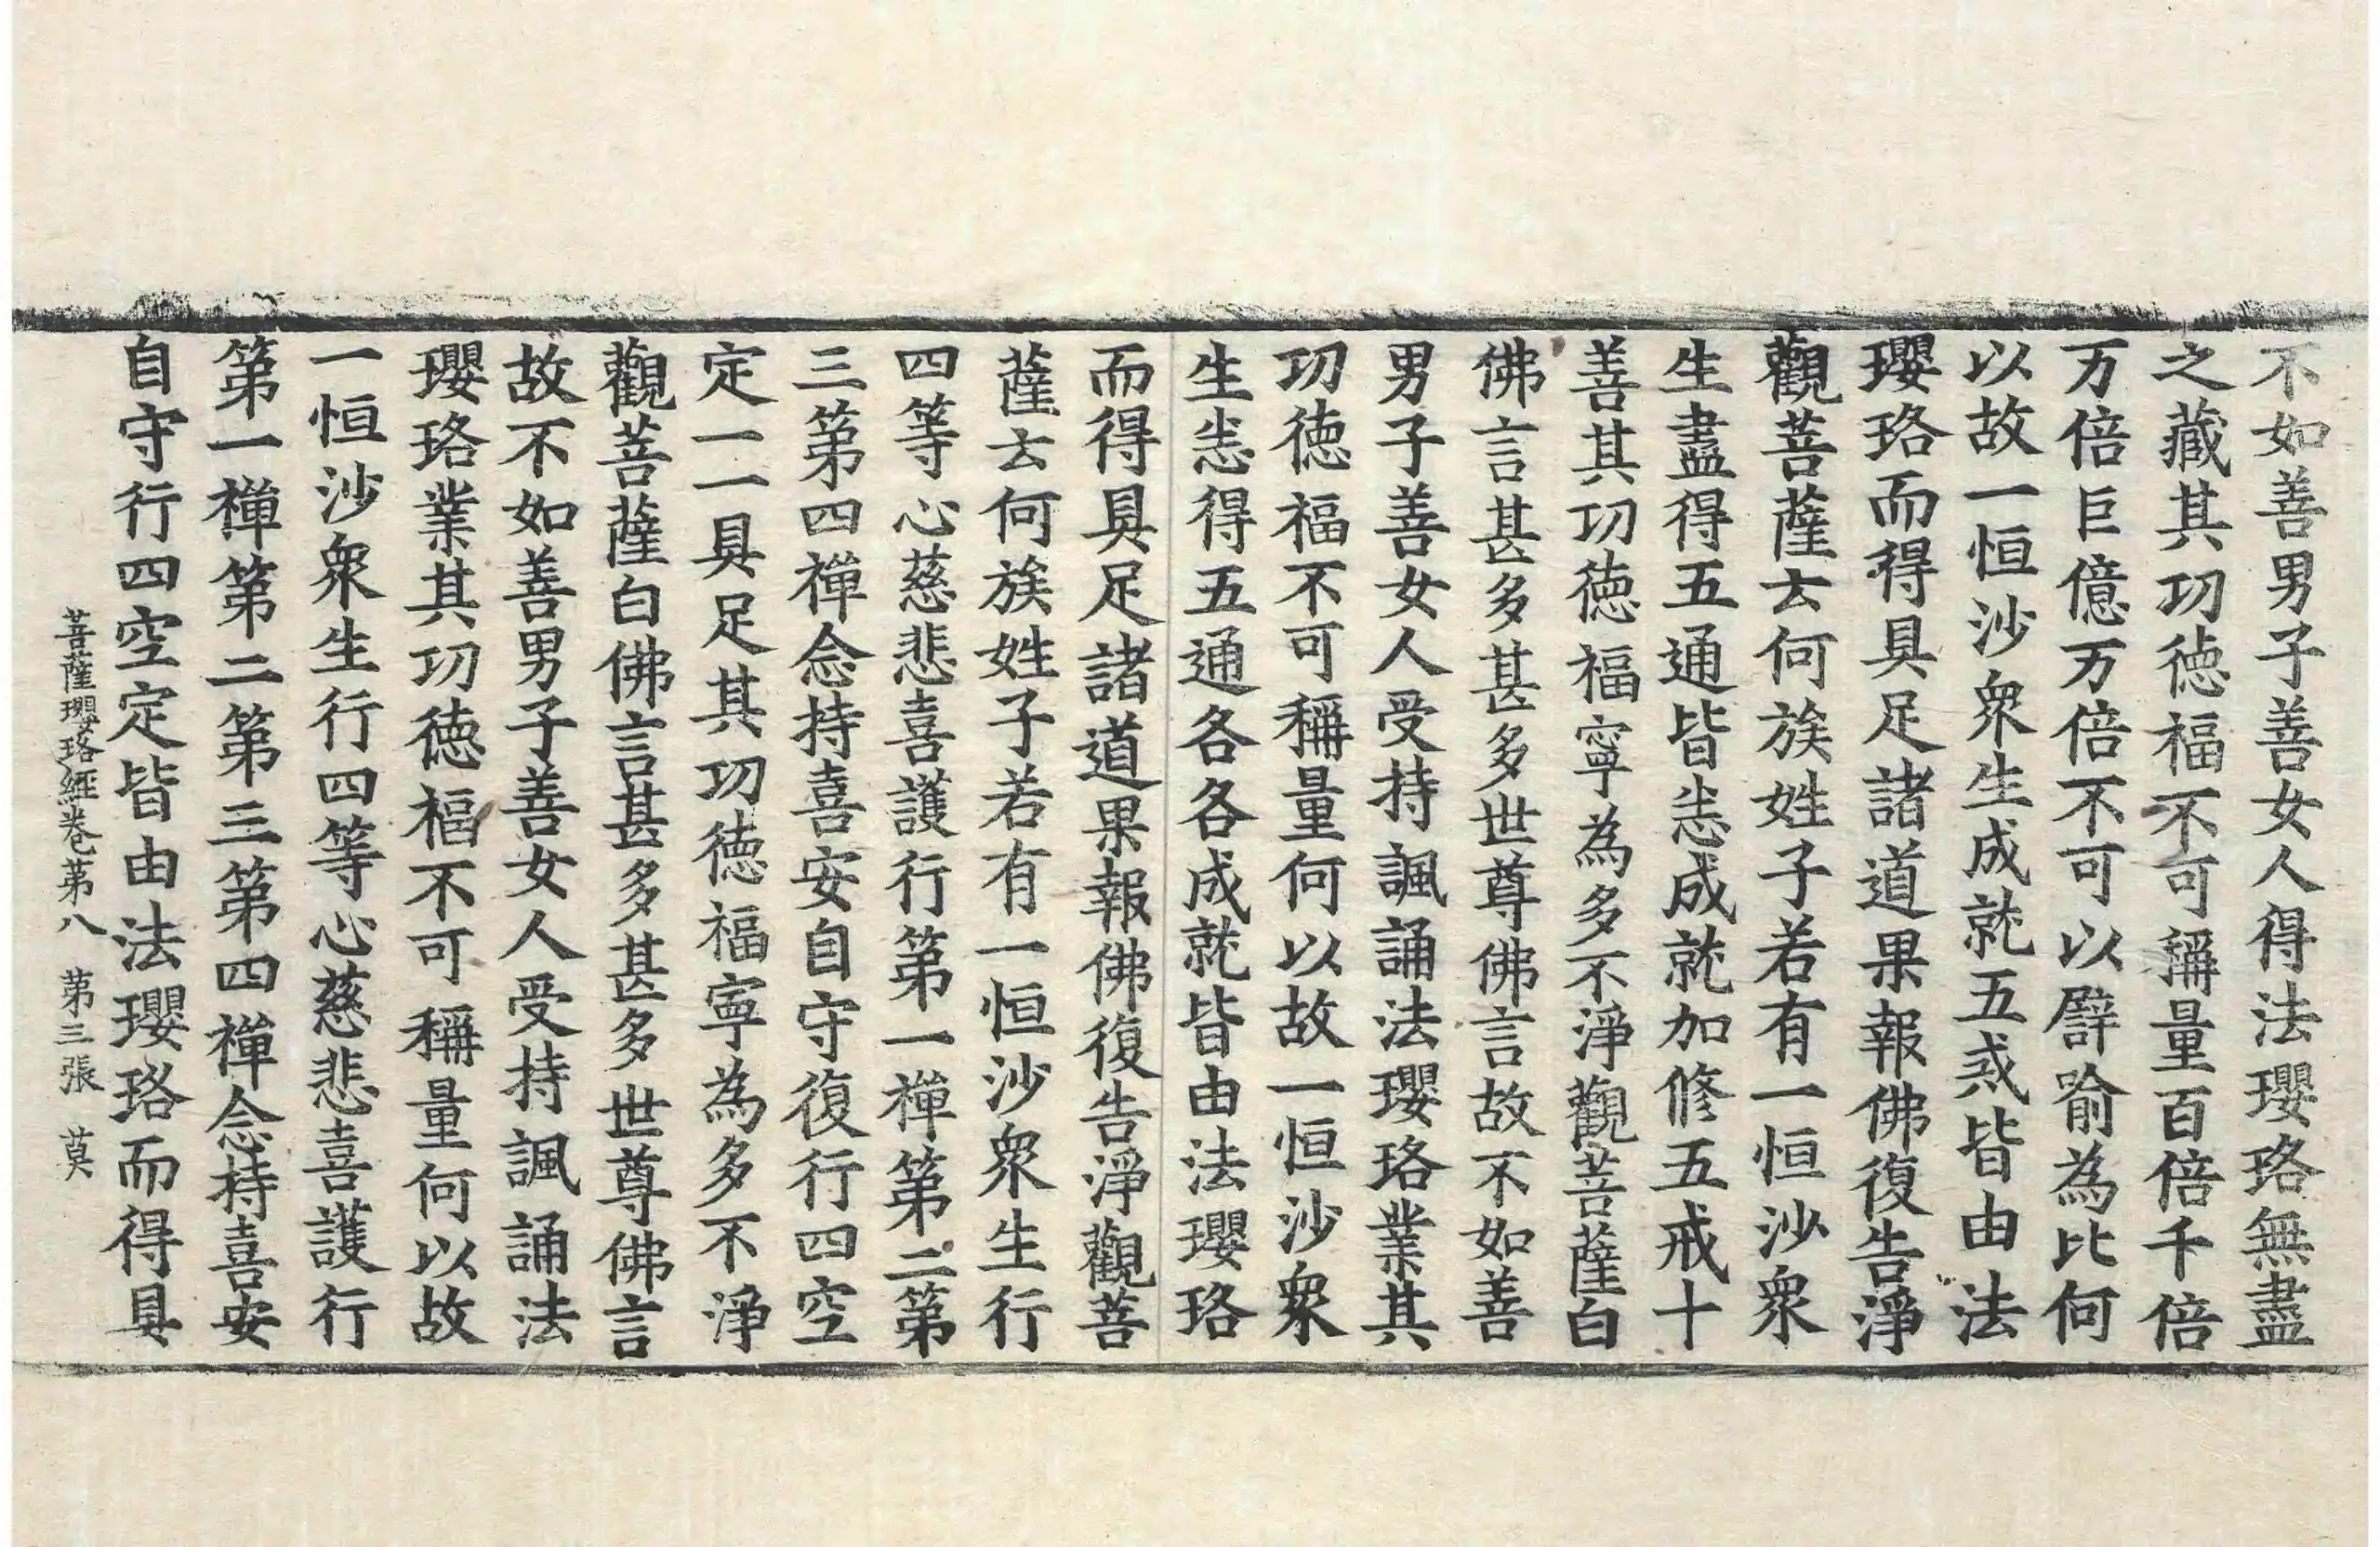 不如善男子善女人得法瓔珞無盡
之藏其功徳福不可稱量百倍千倍
万倍巨億万倍不可以譬喻為比何
以故一恒沙衆生成就五戒皆由法
瓔珞而得具足諸道果報佛復告淨
觀菩薩云何族姓子若有一恒沙衆
生盡得五通皆悉成就加修五戒十
善其功徳福寧為多不淨觀菩薩白
佛言甚多甚多世尊佛言故不如善
男子善女人受持諷誦法瓔珞業其
功徳福不可稱量何以故一恒沙衆
生悉得五通各各成就皆由法瓔珞
而得具足諸道果報佛復告淨觀菩
薩云何族姓子若有一恒沙衆生行
四等心慈悲喜護行第一禪第二第
三第四禪念持喜安自守復行四空
定一一具足其功徳福寧為多不淨
觀菩薩白佛言甚多甚多世尊佛言
故不如善男子善女人受持諷誦法
瓔珞業其功徳福不可稱量何以故
一恒沙衆生行四等心慈悲喜護行
第一禪第二第三第四禪念持喜安
自守行四空定皆由法瓔珞而得具
菩薩瓔珞經卷第八 第三張 莫